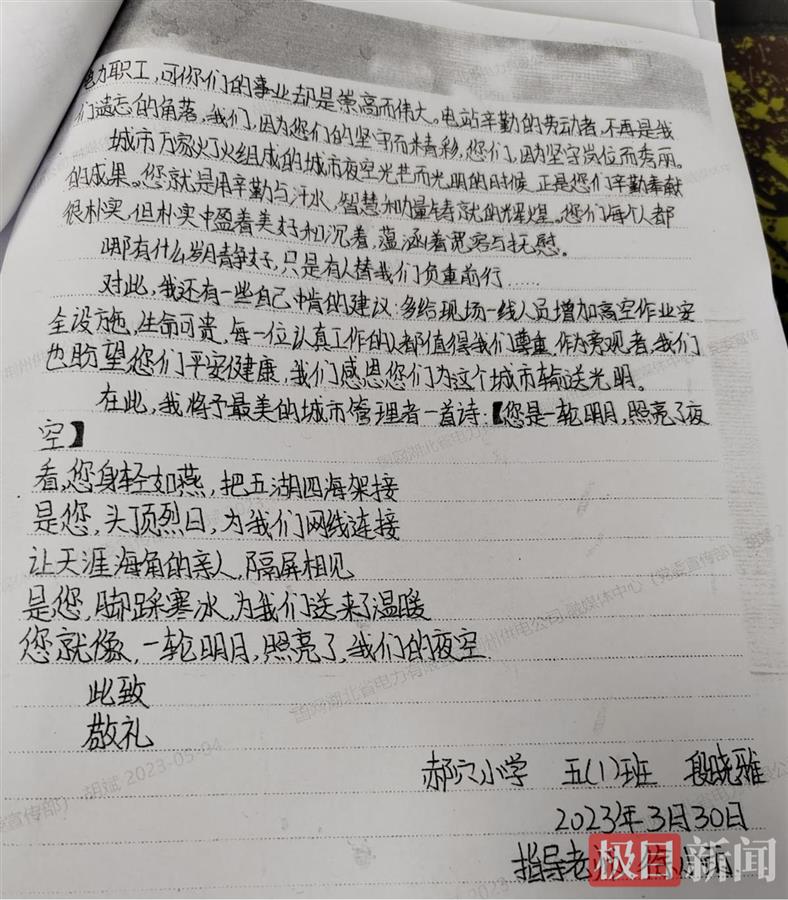 电力职工，可你们的事业却是崇高而伟大。电站辛勤的劳动者，不再是我
们遗忘的角落，我们，因为您们的坚守而精彩，您们，因为坚守岗位而秀丽。
城市万家灯火组成的城市夜空光芒而光明的时候，正是您们辛勤奉献
的成果。您就是用辛勤与汗水，智慧和力量铸就的辉煌。您们每个人都
很朴实，但朴实中盈着美好和沉着，蕴涵着宽容与抚慰。
哪有什么岁月静好，只是有人替我们负重前行……
对此，我还有一些自己中肯的建议：多给现场一线人员增加高空作业安
全设施，生命可贵，每一位认真工作的人都值得我们尊重，作为旁观者，我们
也盼望您们平安健康，我们感恩您们为这个城市输送光明。
在此，我将予最美的城市管理者一首诗：【您是一轮明月，照亮了夜
空】
看，您身轻如燕，把五湖四海架接
是您，头顶烈日，为我们网线连接
让天涯海角的亲人，隔屏相见
是您，脚踩寒冰，为我们送来了温暖
您就像，一轮明月，照亮了，我们的夜空
此致
敬礼
郝穴小学 五(1)班 段晓雅
2023年3月30日
指导老
极目新闻
胡斌 2023-05-04